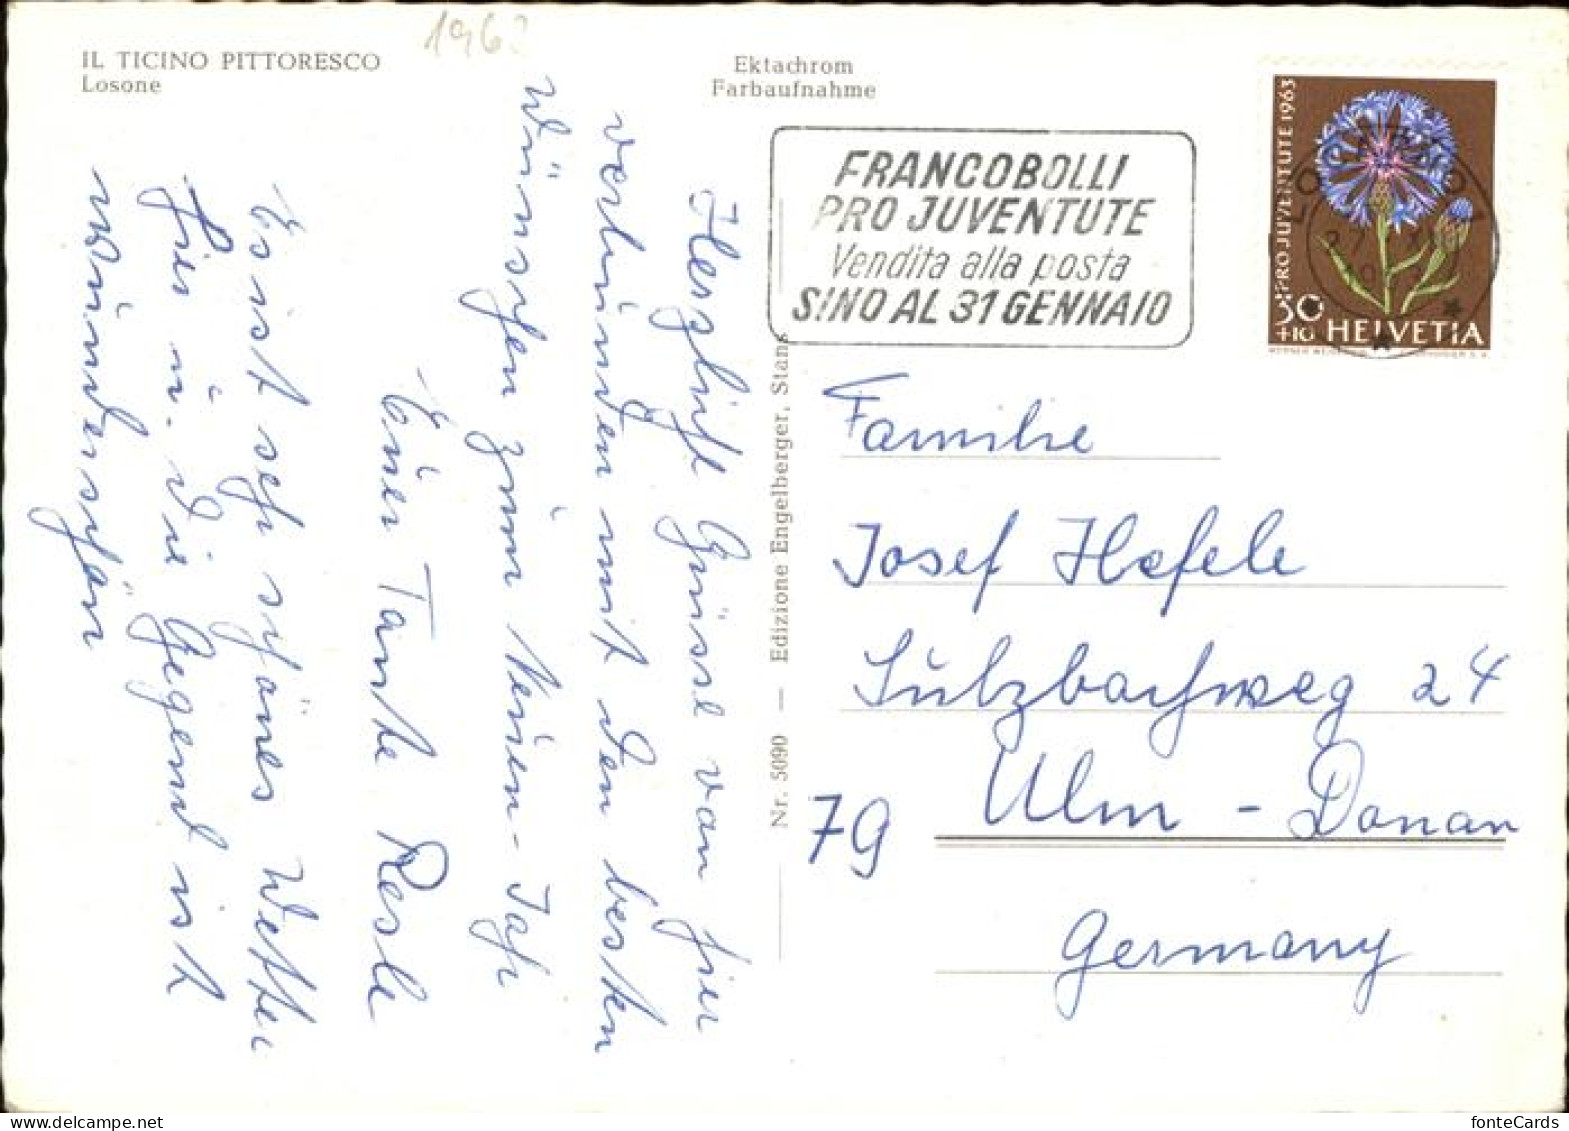 IL TICINO PITTORESCO
Losone
Ektachrom
Farbaufnahme
FRANCOBOLLI
PRO JUVENTUTE
Vendita alla posta
SINO AL 31 GENNAIO
PRO JUVENTUTE 1963
30
+10 HELVETIA
Herzlich Grüsse von hier
verbunden mit den besten
Wünschen zum Neuen-Jahr
Euer Tante Resle
Es ist sehr schönes Wetter
hier u. die Gegend ist
wunderschön
Nr. 5090 — Edizione Engelberger, Stans
Familie
Josef Hefele
Sulzbachweg 24
79 Ulm - Donau
Germany
fonteCards